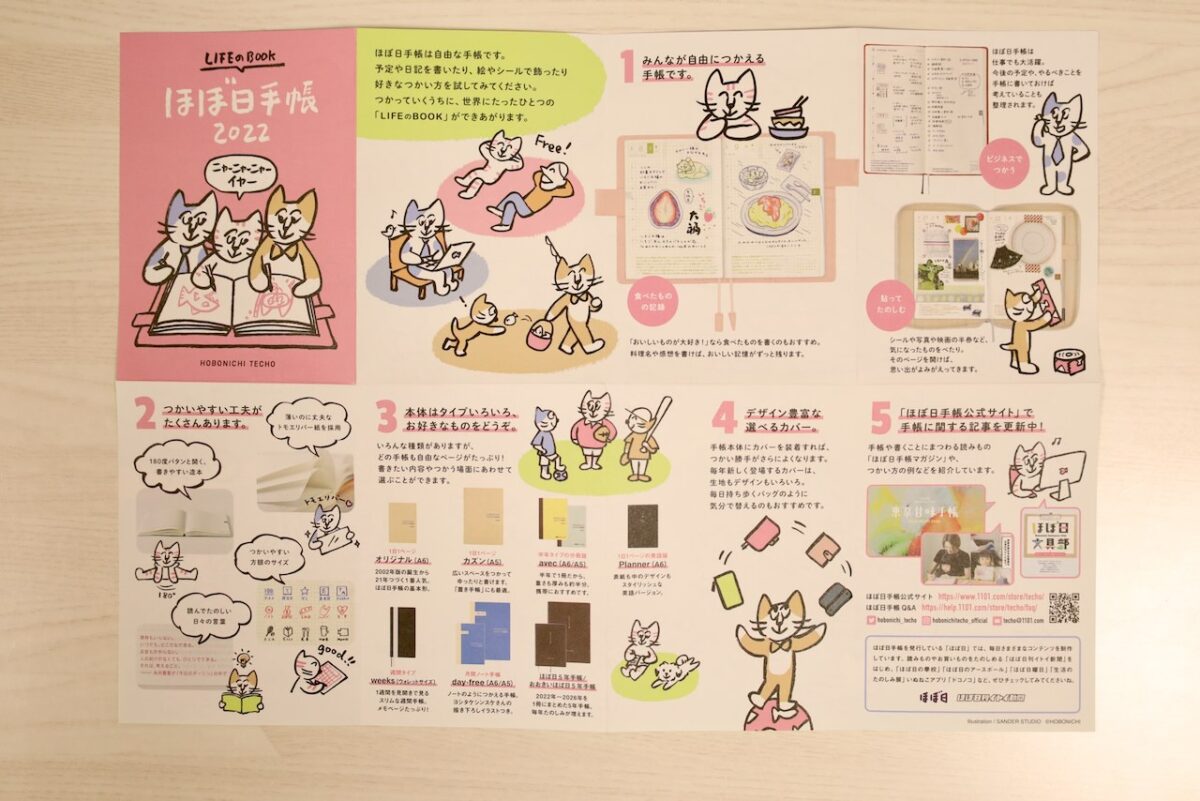 LIFEのBOOK
ほぼ日手帳
2022
ニャーニャーニャー
イヤー
HOBONICHI TECHO
ほぼ日手帳は自由な手帳です。
予定や日記を書いたり、絵やシールで飾ったり
好きなつかい方を試してみてください。
つかっていくうちに、世界にたったひとつの
「LIFEのBOOK」ができあがります。
Free!
1 みんなが自由につかえる
手帳です。
食べたもの
の記録
「おいしいものが大好き!」なら食べたものを書くのもおすすめ。
料理名や感想を書けば、おいしい記憶がずっと残ります。
ほぼ日手帳は
仕事でも大活躍。
今後の予定や、やるべきことを
手帳に書いておけば
考えていることも
整理されます。
ビジネスで
つかう
貼って
たのしむ
シールや写真や映画の半券など、
気になったものをぺたり。
そのページを開けば、
思い出がよみがえってきます。
2 つかいやすい工夫が
たくさんあります。
薄いのに丈夫な
トモエリバー紙を採用
180度パタンと開く、
書きやすい造本
トモエリバー
つかいやすい
方眼のサイズ
180°
読んでたのしい
日々の言葉
good!!
3 本体はタイプいろいろ、
お好きなものをどうぞ。
いろんな種類がありますが、
どの手帳も自由なページがたっぷり!
書きたい内容やつかう場面にあわせて
選ぶことができます。
1日1ページ
オリジナル(A6)
2002年版の誕生から
21年つづく1番人気。
ほぼ日手帳の基本形。
1日1ページ
カズン(A5)
広いスペースをつかって
ゆったりと書けます。
「置き手帳」にも最適。
半年タイプの分冊版
avec(A6/A5)
半年で1冊だから、
重さも厚みも約半分。
携帯におすすめです。
1日1ページの英語版
Planner(A6)
表紙も中のデザインも
スタイリッシュな
英語バージョン。
週間タイプ
weeks(ウォレットサイズ)
1週間を見開きで見る
スリムな週間手帳。
メモページたっぷり!
月間ノート手帳
day-free(A6/A5)
ノートのようにつかえる手帳。
ヨシタケシンスケさんの
描き下ろしイラストつき。
ほぼ日5年手帳/
おおきいほぼ日5年手帳
2022年〜2026年を
1冊にまとめた5年手帳。
毎年たのしみが増えます。
4 デザイン豊富な
選べるカバー。
手帳本体にカバーを装着すれば、
つかい勝手がさらによくなります。
毎年新しく登場するカバーは、
生地もデザインもいろいろ。
毎日持ち歩くバッグのように
気分で替えるのもおすすめです。
5 「ほぼ日手帳公式サイト」で
手帳に関する記事を更新中!
手帳や書くことにまつわる読みもの
「ほぼ日手帳マガジン」や、
つかい方の例などを紹介しています。
ほぼ日
文具部
ほぼ日手帳公式サイト https://www.1101.com/store/techo/
ほぼ日手帳Q&A https://help.1101.com/store/techo/faq/
hobonichi_techo hobonichitecho_official techo@1101.com
ほぼ日手帳を発行している「ほぼ日」では、毎日さまざまなコンテンツを制作
しています。読みものやお買いものをたのしめる「ほぼ日刊イトイ新聞」を
はじめ、「ほぼ日の學校」「ほぼ日のアースボール」「ほぼ日曜日」「生活の
たのしみ展」いぬねこアプリ「ドコノコ」など、ぜひチェックしてみてくださいね。
ほぼ日 ほぼ日刊イトイ新聞
Illustration : SANDER STUDIO ©HOBONICHI